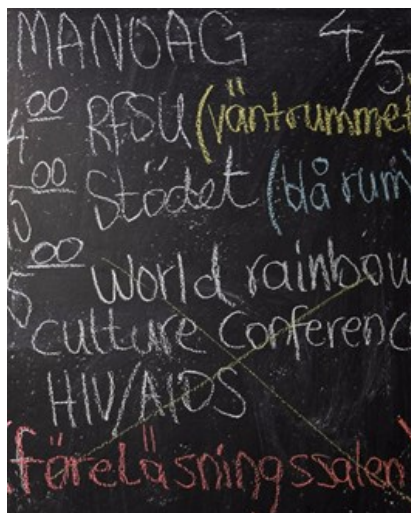 MANDAG 4/5
4 00 RFSU (väntrummet
5 00 Stödet (blå rum)
5 00 World rainbow
culture Conferenc
HIV/AIDS
(föreläsningssalen)